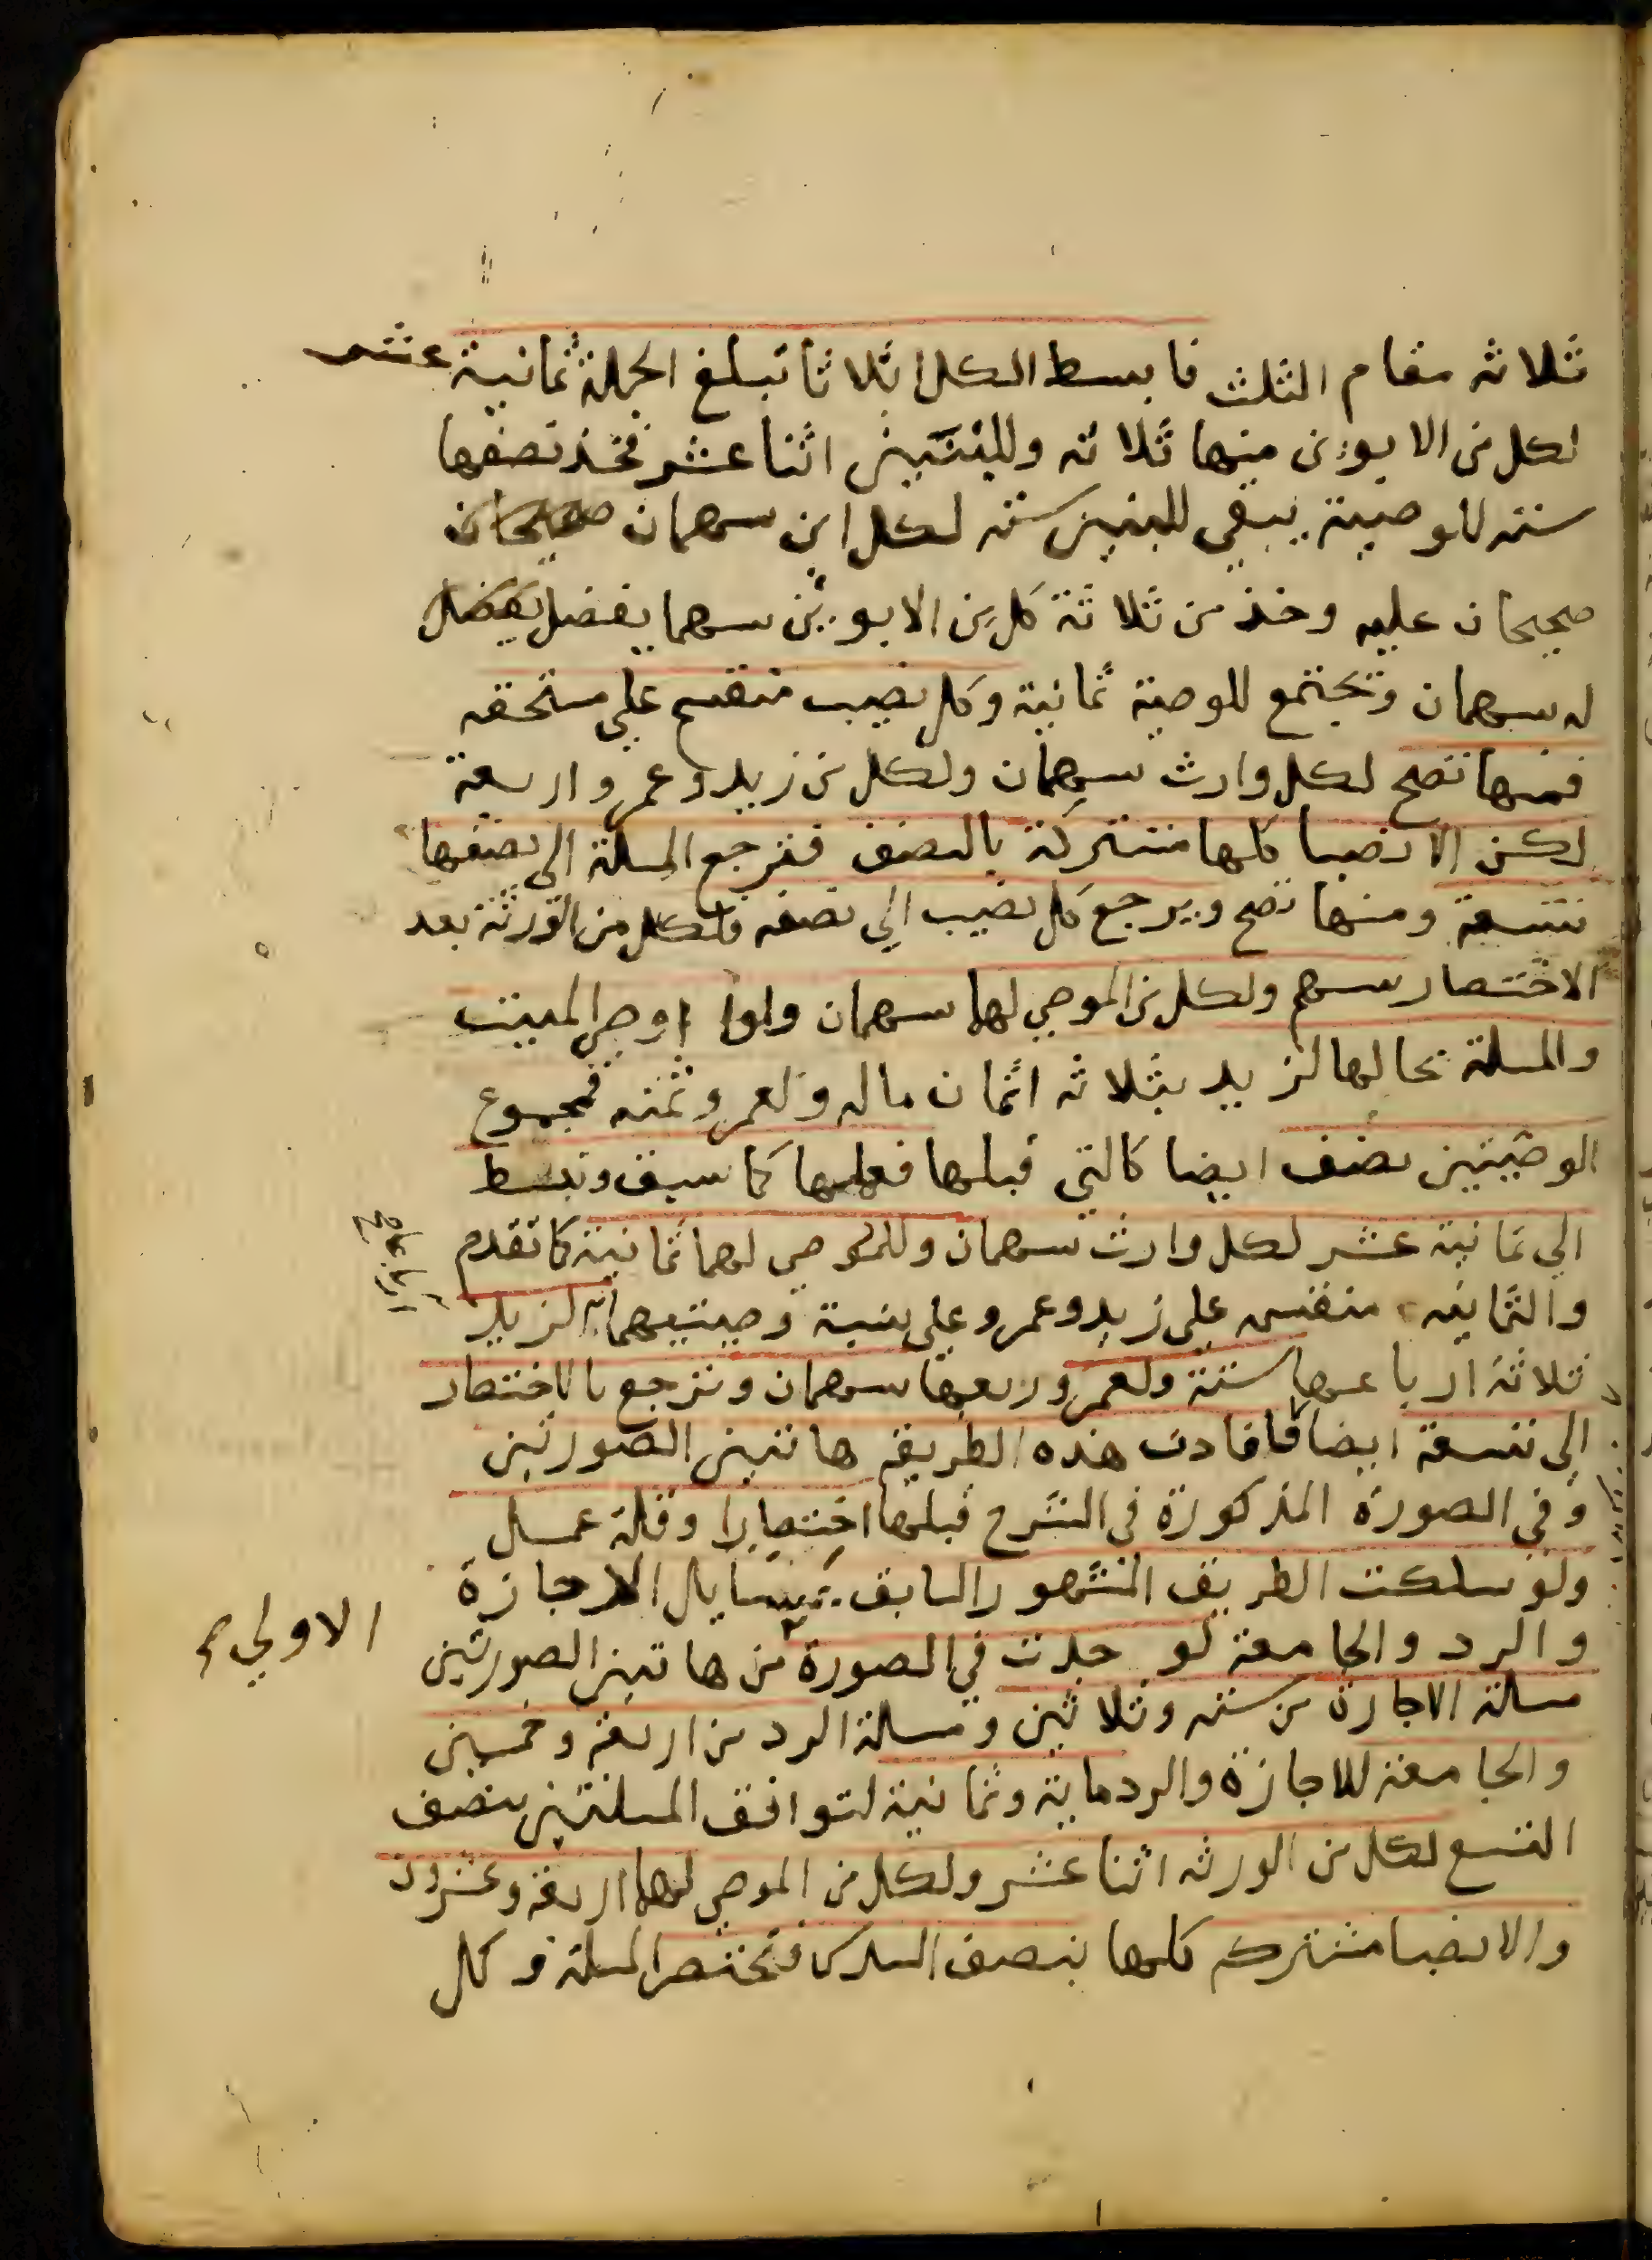 ثلاثه مقام الثلث فابسط الكل اثلاثا تبلغ الجملة ثمانية عشر
لكل من الابوين منها ثلاثه وللبنين اثنا عشر فخذ نصفها
سته للوصية يبقي للبنين سته لكل ابن سهمان صحيحان
صحيحان عليه وخذ من ثلاثة كل من الابوين سهما يفضل يفضل
له سهمان وتجتمع للوصية ثمانية وكل نصيب منقسم علي مستحقه
فمنها تصح لكل وارث سهمان ولكل من زيد وعمرو اربعة
لكن الانصبا كلها مشتركة بالنصف فترجع المسلة الي نصفها
تسعة ومنها تصح ويرجع كل نصيب الي نصفه فلكل من الورثة بعد
الاختصار سهم ولكل من الموصي لهما سهمان ولو اوصي الميت
والمسلة بحالها لزيد بثلاثه اثمان ماله ولعمرو ثمنه فمجموع
الوصيتين نصف ايضا كالتي قبلها فعملها كما سبق وتبسط
الي ثمانية عشر لكل وارث سهمان وللموصي لهما ثمانية كما تقدم
والثمانيه منقسمه علي زيد وعمرو علي نسبة وصيتيهما لزيد
ثلاثة ارباعها ستة ولعمرو ربعها سهمان وترجع بالاختصار
الي تسعة ايضا فافادت هذه الطريقه هاتين الصورتين
وفي الصورة المذكورة في الشرح قبلها اختصارا وقلة عمل
ولو سلكت الطريق المشهور السابق مسايل الاجازة
والرد والجامعة لو جدت في الصورة من هاتين الصورتين
الاولي
مسلة الاجازة من سته وثلاثين ومسلة الرد من اربعة وخمسين
والجامعة للاجازة والرد ماية وثمانية لتوافق المسلتين بنصف
التسع لكل من الورثه اثنا عشر ولكل من الموصي لهما اربعة وعشرون
والانصبا مشتركه كلها بنصف السدس فتختصر المسلة وكل